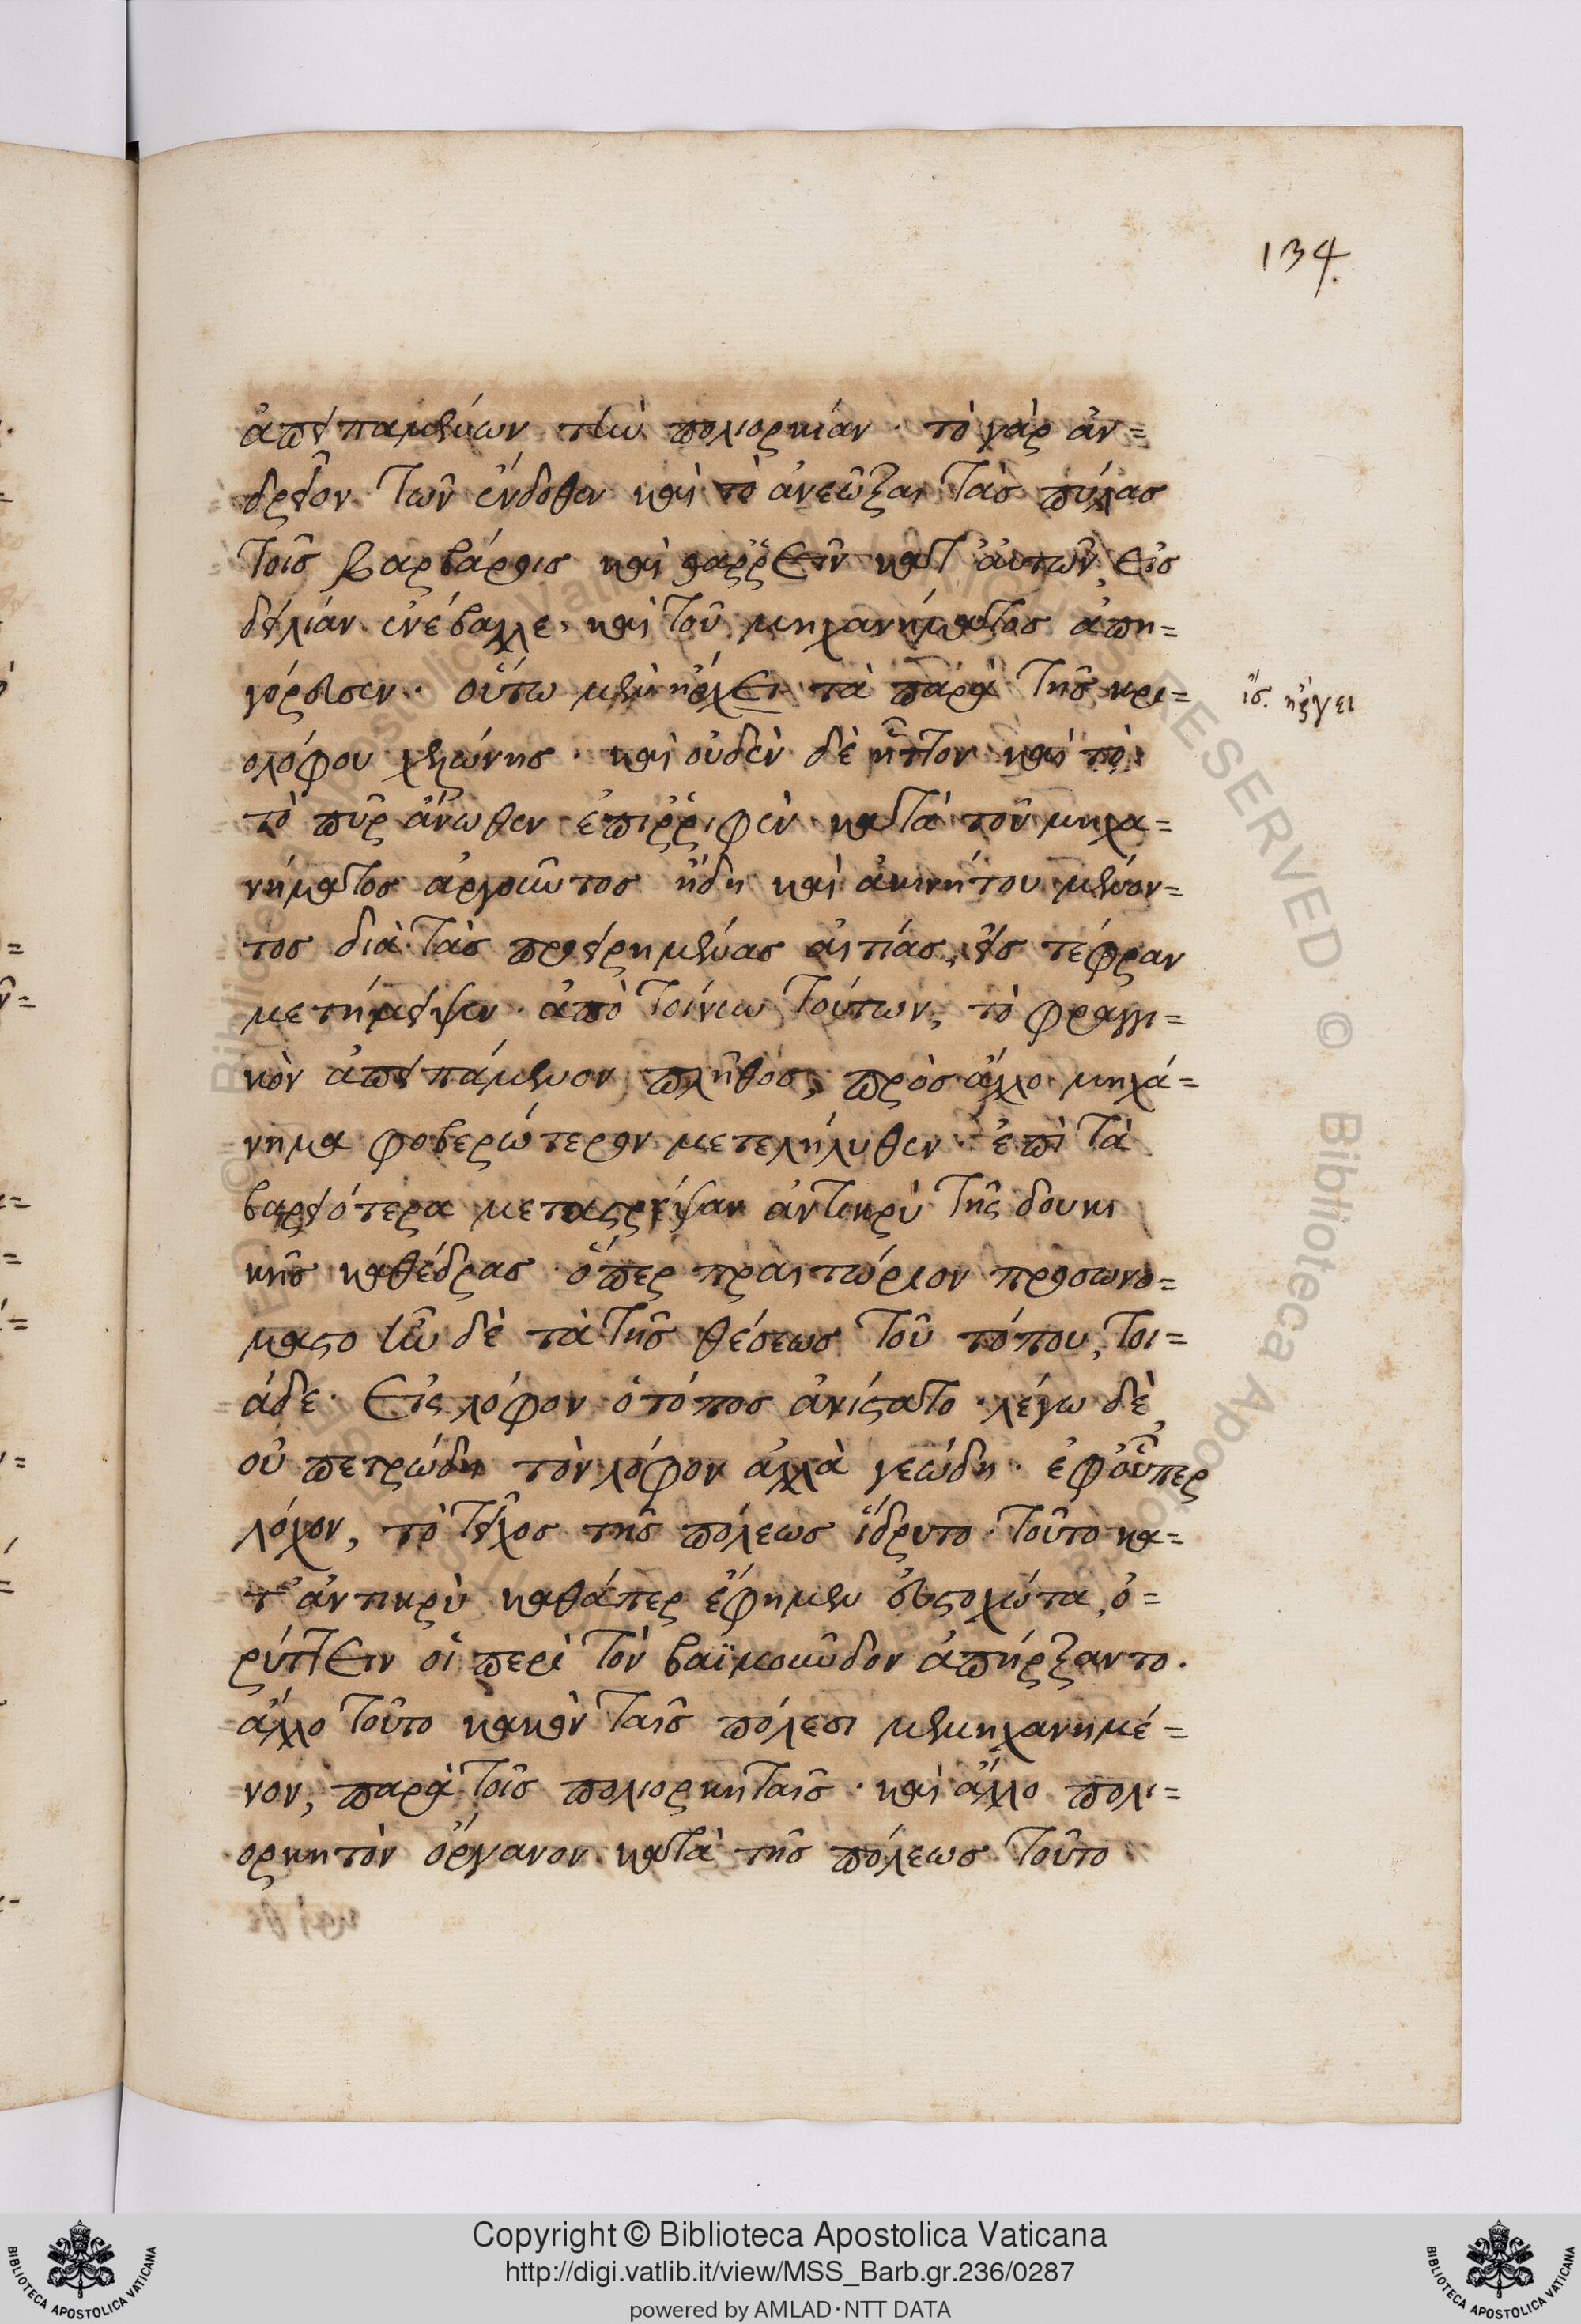 134.
ἀπειπαμένων τὴν πολιορκίαν· τὸ γὰρ ἀν=
δρεῖον τῶν ἔνδοθεν καὶ τὸ ἀνεῶξαι τὰς πύλας
τοῖς βαρβάροις καὶ θαῤῥεῖν κατ' αὐτῶν, εἰς
δειλίαν ἐνέβαλλε, καὶ τοῦ μηχανήματος ἀπη=
γόρευσεν. οὕτω μὲν ἤρχει τὰ παρὰ τῆς κρι=
ἴσ. ἤργει
ολόφου χελώνης· καὶ οὐδὲν δὲ ἧττον καὶ τὸ
τὸ πῦρ ἄνωθεν ἐπιῤῥιφὲν κατὰ τοῦ μηχα=
νήματος ἀργοῦντος ἤδη καὶ ἀκινήτου μένον=
τος διὰ τὰς προειρημένας αἰτίας, εἰς τέφραν
μετήμειψεν. ἀπὸ τοίνυν τούτων, τὸ φραγγι=
κὸν ἀπειπάμενον πλῆθος, πρὸς ἄλλο μηχά=
νημα φοβερώτερον μετελήλυθεν· ἐπὶ τὰ
βαρειότερα μεταστρέψαν ἀντικρὺ τῆς δουκι
κῆς καθέδρας· ὅπερ πραιτώριον προσωνό=
μαστο ἦν δὲ τὰ τῆς θέσεως τοῦ τόπου, τοι=
άδε· εἰς λόφον ὁ τόπος ἀνίστατο· λέγω δὲ
οὐ πετρώδη τὸν λόφον ἀλλὰ γεώδη· ἐφ' οὗπερ
λόχον, τὸ τεῖχος τῆς πόλεως ἵδρυτο· τοῦτο κα=
τ' ἀντικρὺ καθάπερ ἔφημεν εὐστοχώτα, ὀ=
ρύττειν οἱ περὶ τὸν βαϊμοῦνδον ἀπήρξαντο.
ἄλλο τοῦτο κακὸν ταῖς πόλεσι μεμηχανημέ=
νον, παρὰ τοῖς πολιορκηταῖς· καὶ ἄλλο πολι=
ορκητὸν ὄργανον κατὰ τῆς πόλεως τοῦτο
Copyright © Biblioteca Apostolica Vaticana
http://digi.vatlib.it/view/MSS_Barb.gr.236/0287
powered by AMLAD·NTT DATA
BIBLIOTECA APOSTOLICA VATICANA
BIBLIOTECA APOSTOLICA VATICANA